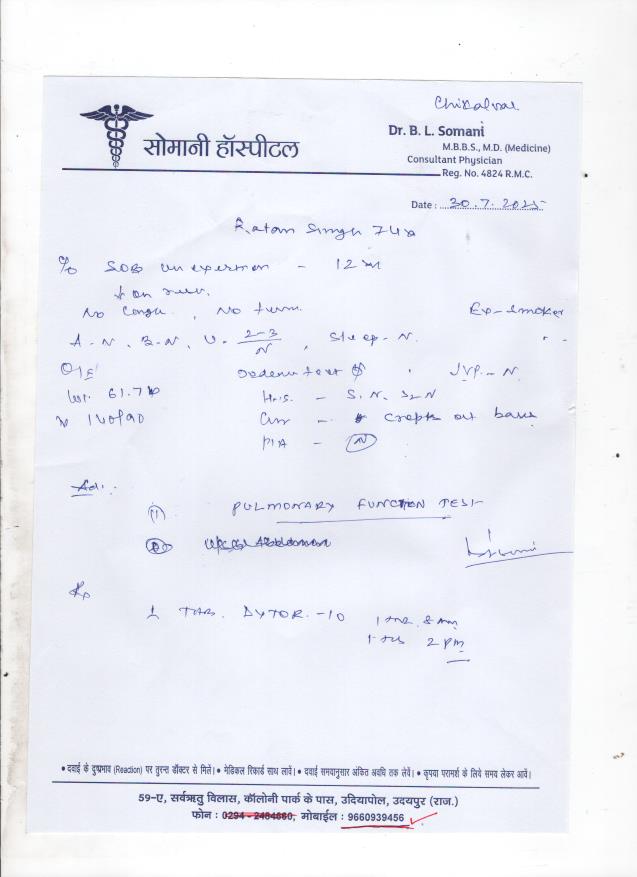 सोमानी हॉस्पीटल
Dr. B. L. Somani
M.B.B.S., M.D. (Medicine)
Consultant Physician
Reg. No. 4824 R.M.C.
Date : 30.7.2025
Ratan Singh 74
c/o SOB on exertion - 12
No cough, No
Ex-smoker
A-N, B-N, U- 2-3/N, Sleep-N.
O/E
Oedema feet JVP-N
Wt. 61.7
H.S. - S1N, S2N
140/90
crepts at base
P/A - N
Ad:
(1) PULMONARY FUNCTION TEST
Rx
1 TAB. DYTOR-10 1 8 AM
1 2 PM
• दवाई के दुष्प्रभाव (Reaction) पर तुरन्त डॉक्टर से मिलें। • मेडिकल रिकार्ड साथ लावें। • दवाई समयानुसार अंकित अवधि तक लेवें। • कृपया परामर्श के लिये समय लेकर आवें।
59-ए, सर्वऋतु विलास, कॉलोनी पार्क के पास, उदियापोल, उदयपुर (राज.)
फोन : 0294 - 2484660, मोबाईल : 9660939456